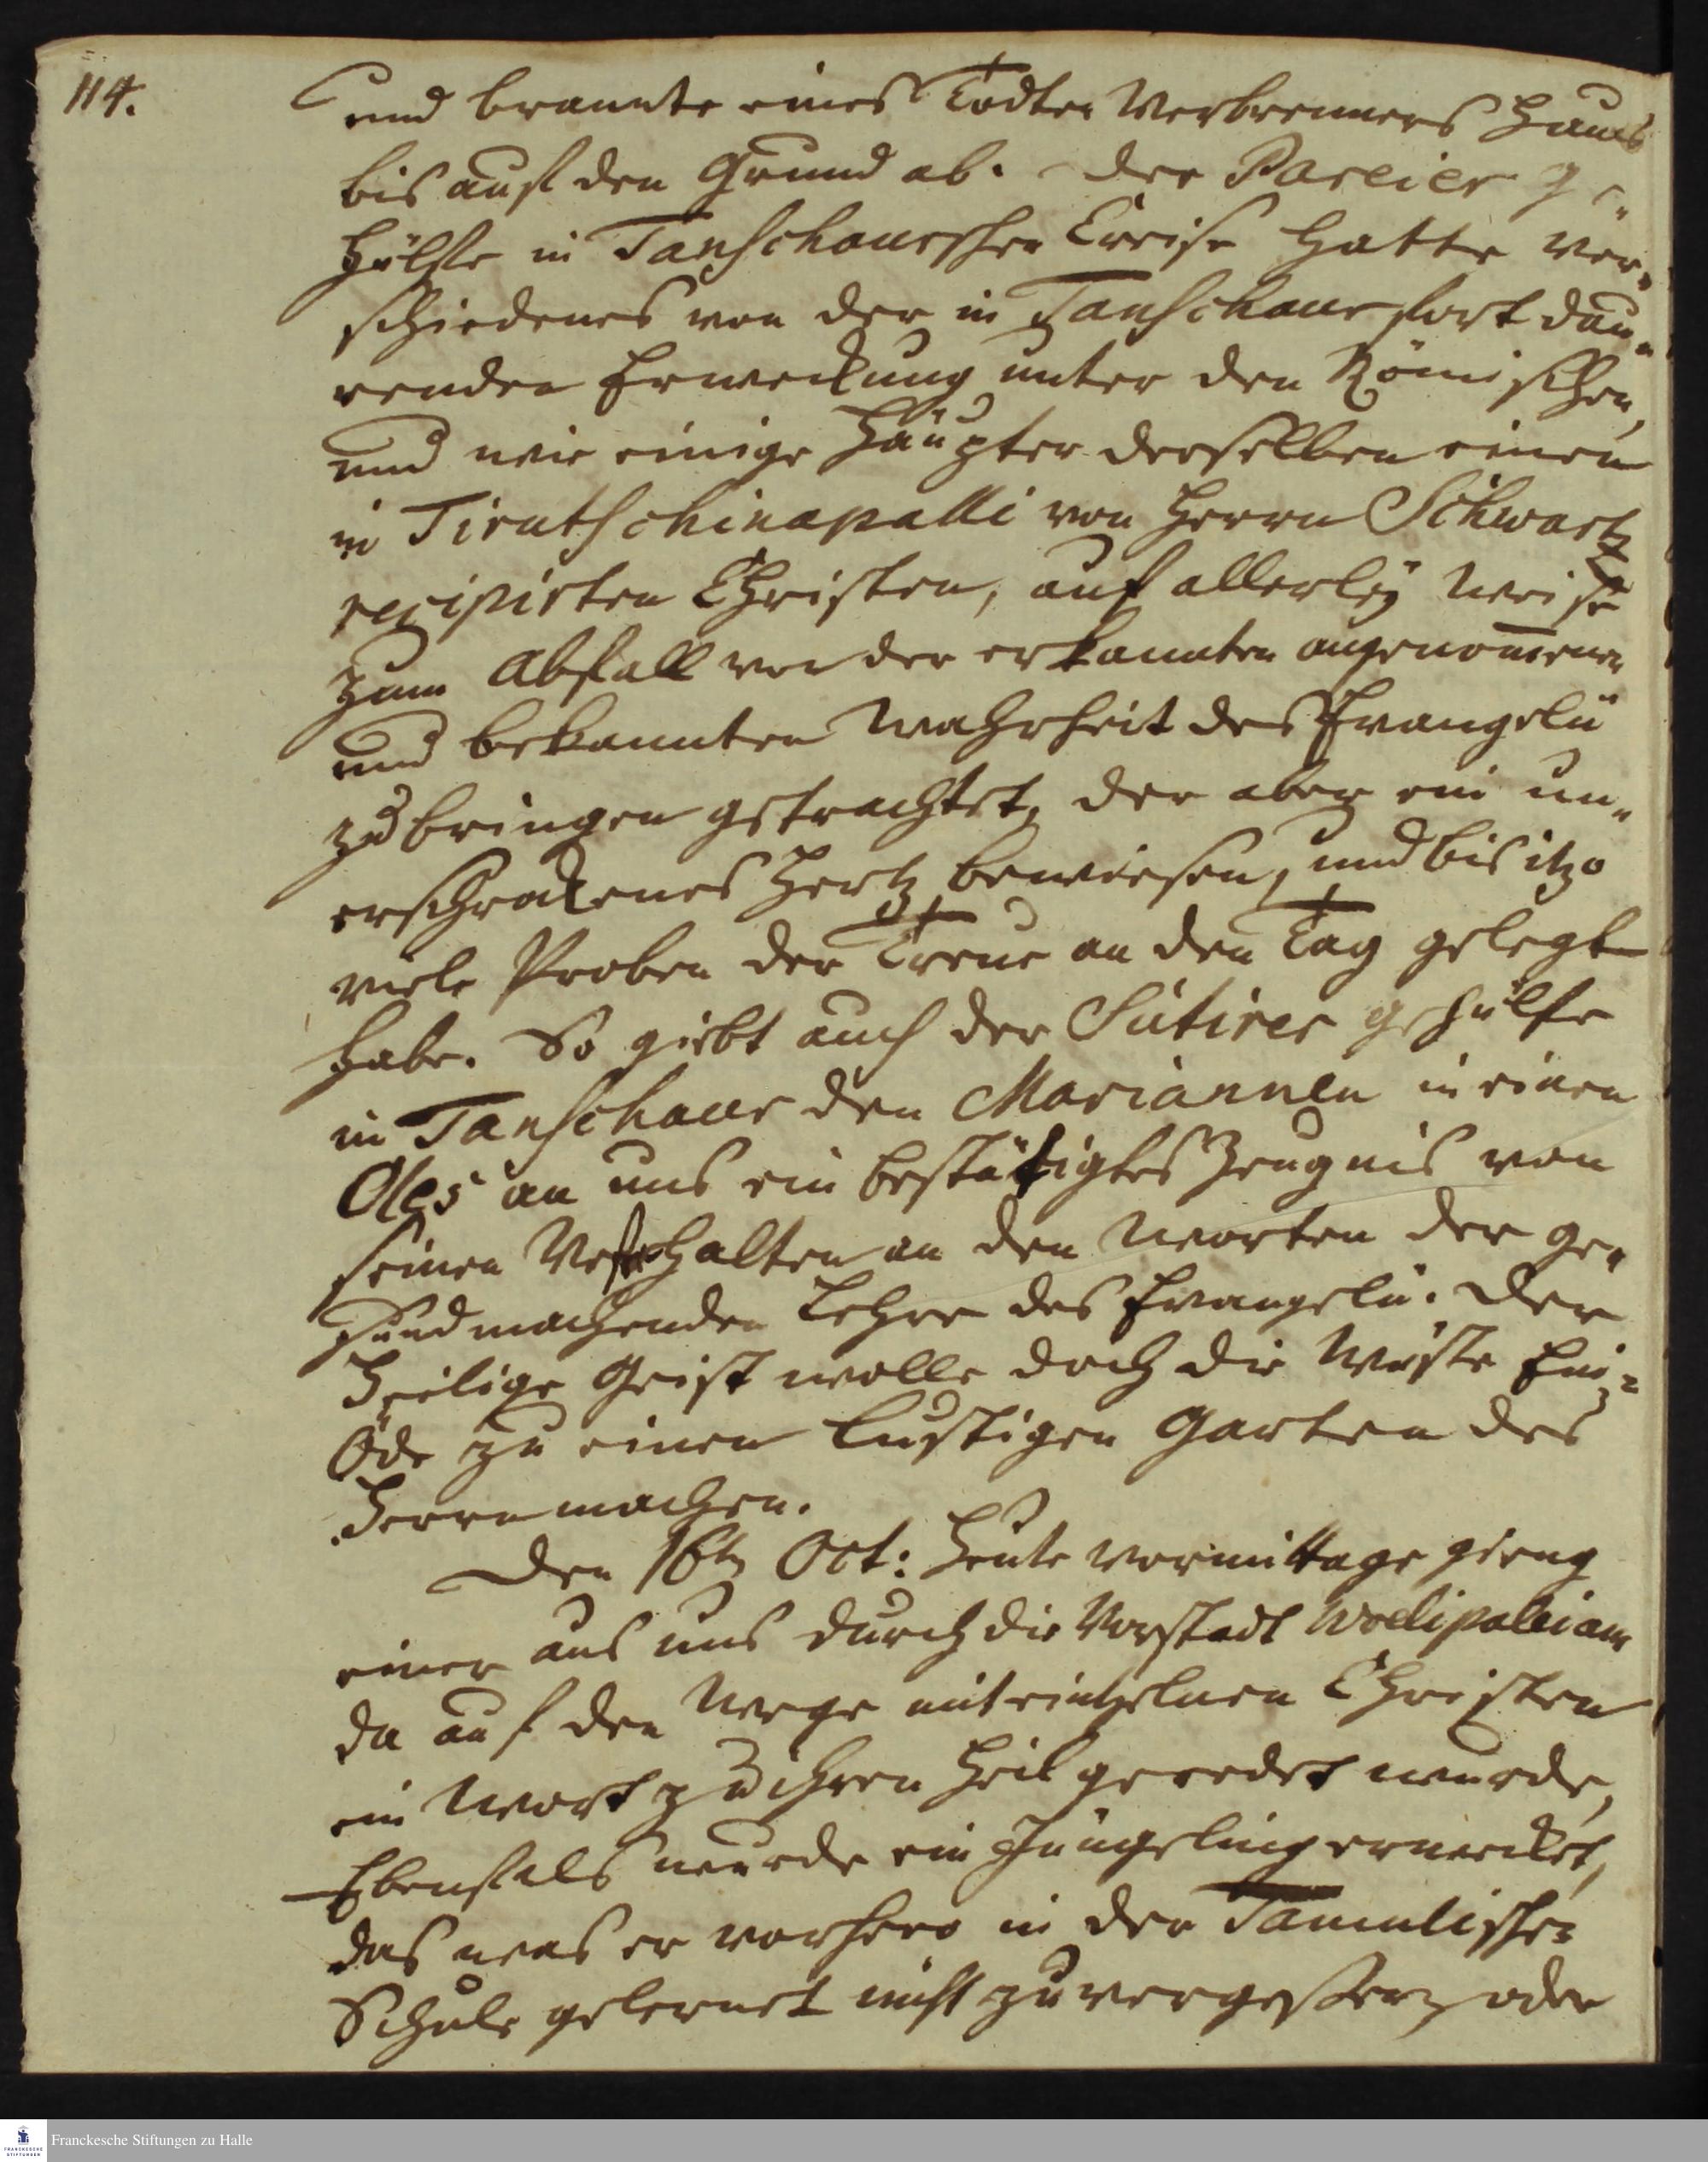 114.
und brannte eines Todten Verbrenners Haus
bis auf den Grund ab. der Pareier Ge„
hülfe in Tanschaurschen Creise hatte ver„
schiedenes von der in Tanschaur fort dau„
renden Erweckung unter den Römischen,
und wie einige Häupter derselben einen
in Tirutschinapalli von Herrn Schwartz
recipirten Christen, auf allerley Weise
zum Abfall von der erkannten angenom̅enen
und bekannten Wahrheit des Evangelii
zu bringen getrachtet, der aber ein un„
erschrokenes Hertz bewiesen, und bis itzo
viele Proben der Treue an den Tag gelegt
habe. So giebt auch der Sutirer gehülfe
in Tanschaur den Mariannen in einen
Oles an uns ein bestätigtes Zeugnis von
seinen Vesthalten an den Worten der ge„
sund machenden Lehre des Evangelii. Der
Heilige Geist wolle doch die Wüste Ein„
öde zu einen Lustigen Garten des
Herrn machen.
Den 16ten Oct: Heute vormittage gieng
einer aus uns durch die Vorstadt Woelipaleiam
da auf den Wege mit eintzelnen Christen
ein Wort zu ihren Heil geredet wurde,
Ebenfals wurde ein Jüngeling erwecket,
das was er vorhero in der Tamulischen
Schule gelernet nicht zu vergeßen, oder
Franckesche Stiftungen zu Halle